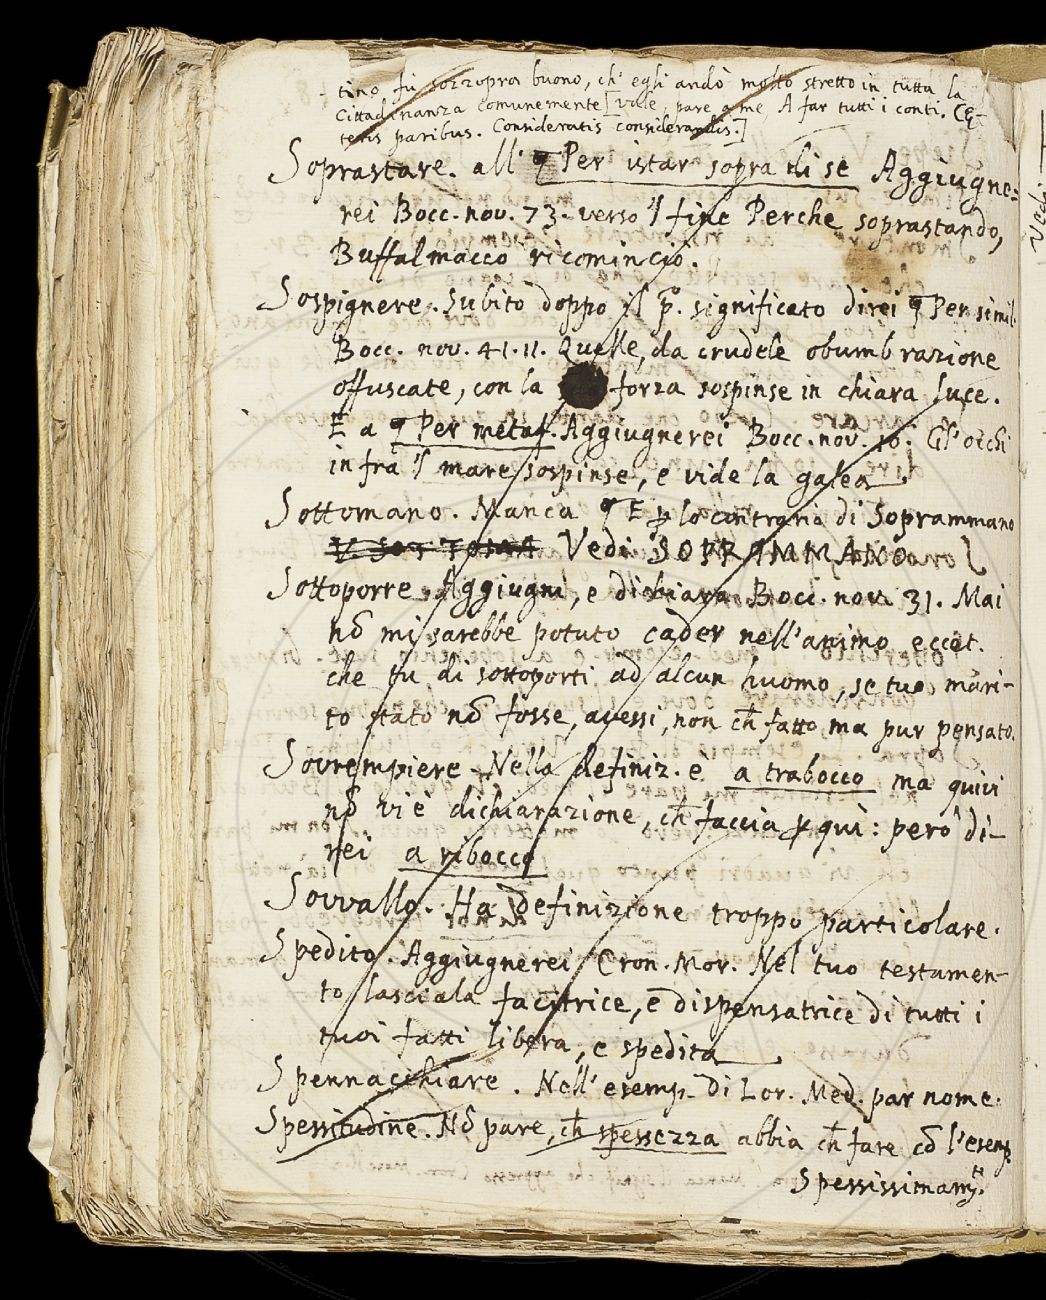 tino fù sozzopra buono, ch' egli andò molto stretto in tutta la
Cittadinanza comunemente [vale, pare a me, A far tutti i conti. Cę-
teris paribus. Consideratis considerandis.]
Soprastare. all' ¶ Per istar sopra di se Aggiugne=
rei Bocc. nov. 73. verso 'l fine Perche soprastando,
Buffalmacco ricominciò.
Sospignere. Subito doppo il p.º significato direi ¶ Per simil.
Bocc. nov. 41. 11. Quelle, da crudele obumbrazione
offuscate, con la forza sospinse in chiara luce.
E a ¶ Per metaf. Aggiugnerei Bocc. nov. 16. Gl'occhi
infra 'l mare sospinse, e vide la galea.
Sottomano. Manca ¶ E ꝑ lo contrario di Soprammano
Vedi SOPRAMMANO
Sottoporre. Aggiugni, e dichiara Bocc. nov. 31. Mai
nõ mi sarebbe potuto cader nell'animo eccet.
che tu di sottoporti ad alcun huomo, se tuo mari-
to stato nõ fosse, avessi, non ch̃ fatto ma pur pensato.
Sovrempiere. Nella definiz. è a trabocco ma quivi
nõ vi è dichiarazione, ch̃ faccia ꝑ quì: però di-
rei a ribocco
Sovvallo. Ha definizione troppo particolare.
Spedito. Aggiugnerei Cron. Mor. Nel tuo testamen-
to lasciala fattrice, e dispensatrice di tutti i
tuoi fatti libera, e spedita.
Spennacchiare. Nell' esemp. di Lor. Med. par nome.
Spessitudine. Nõ pare, ch̃ spessezza abbia ch̃ fare cõ l'esemp.
Spessissimam.te